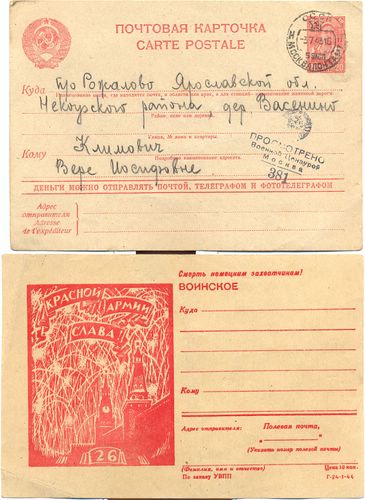 ПОЧТОВАЯ КАРТОЧКА
CARTE POSTALE
СССР
Куда п/о Рожалово Ярославской обл.
Некоузского района дер. Васенино
Район, село или деревня
Улица, № дома и квартиры
Кому Климович
Подробное наименование адресата
Вере Иосифовне
ПРОСМОТРЕНО
Военной Цензурой
Москва
381
ДЕНЬГИ МОЖНО ОТПРАВЛЯТЬ ПОЧТОЙ, ТЕЛЕГРАФОМ И ФОТОТЕЛЕГРАФОМ
Адрес
отправителя
Adresse
de l'expéditeur
Смерть немецким захватчикам!
ВОИНСКОЕ
КРАСНОЙ АРМИИ
СЛАВА!
26
Куда
Кому
Адрес отправителя:
Полевая почта,
(Указать номер полевой почты)
(Фамилия, имя и отчество)
Цена 10 коп.
По заказу УВПП
Г-24-1-44